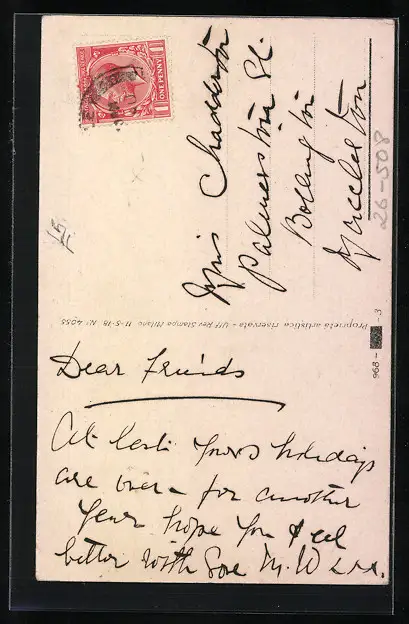 ONE PENNY
Miss Chadderton
Palmerston St.
Bollington
Macclesfield
26-508
Proprietà artistica riservata - Uff. Rev. Stampa Milano 11-5-18 N.° 4055
968- -3
Dear Friends
At last yours holidays
are over - for another
year hope you feel
better with love M. W